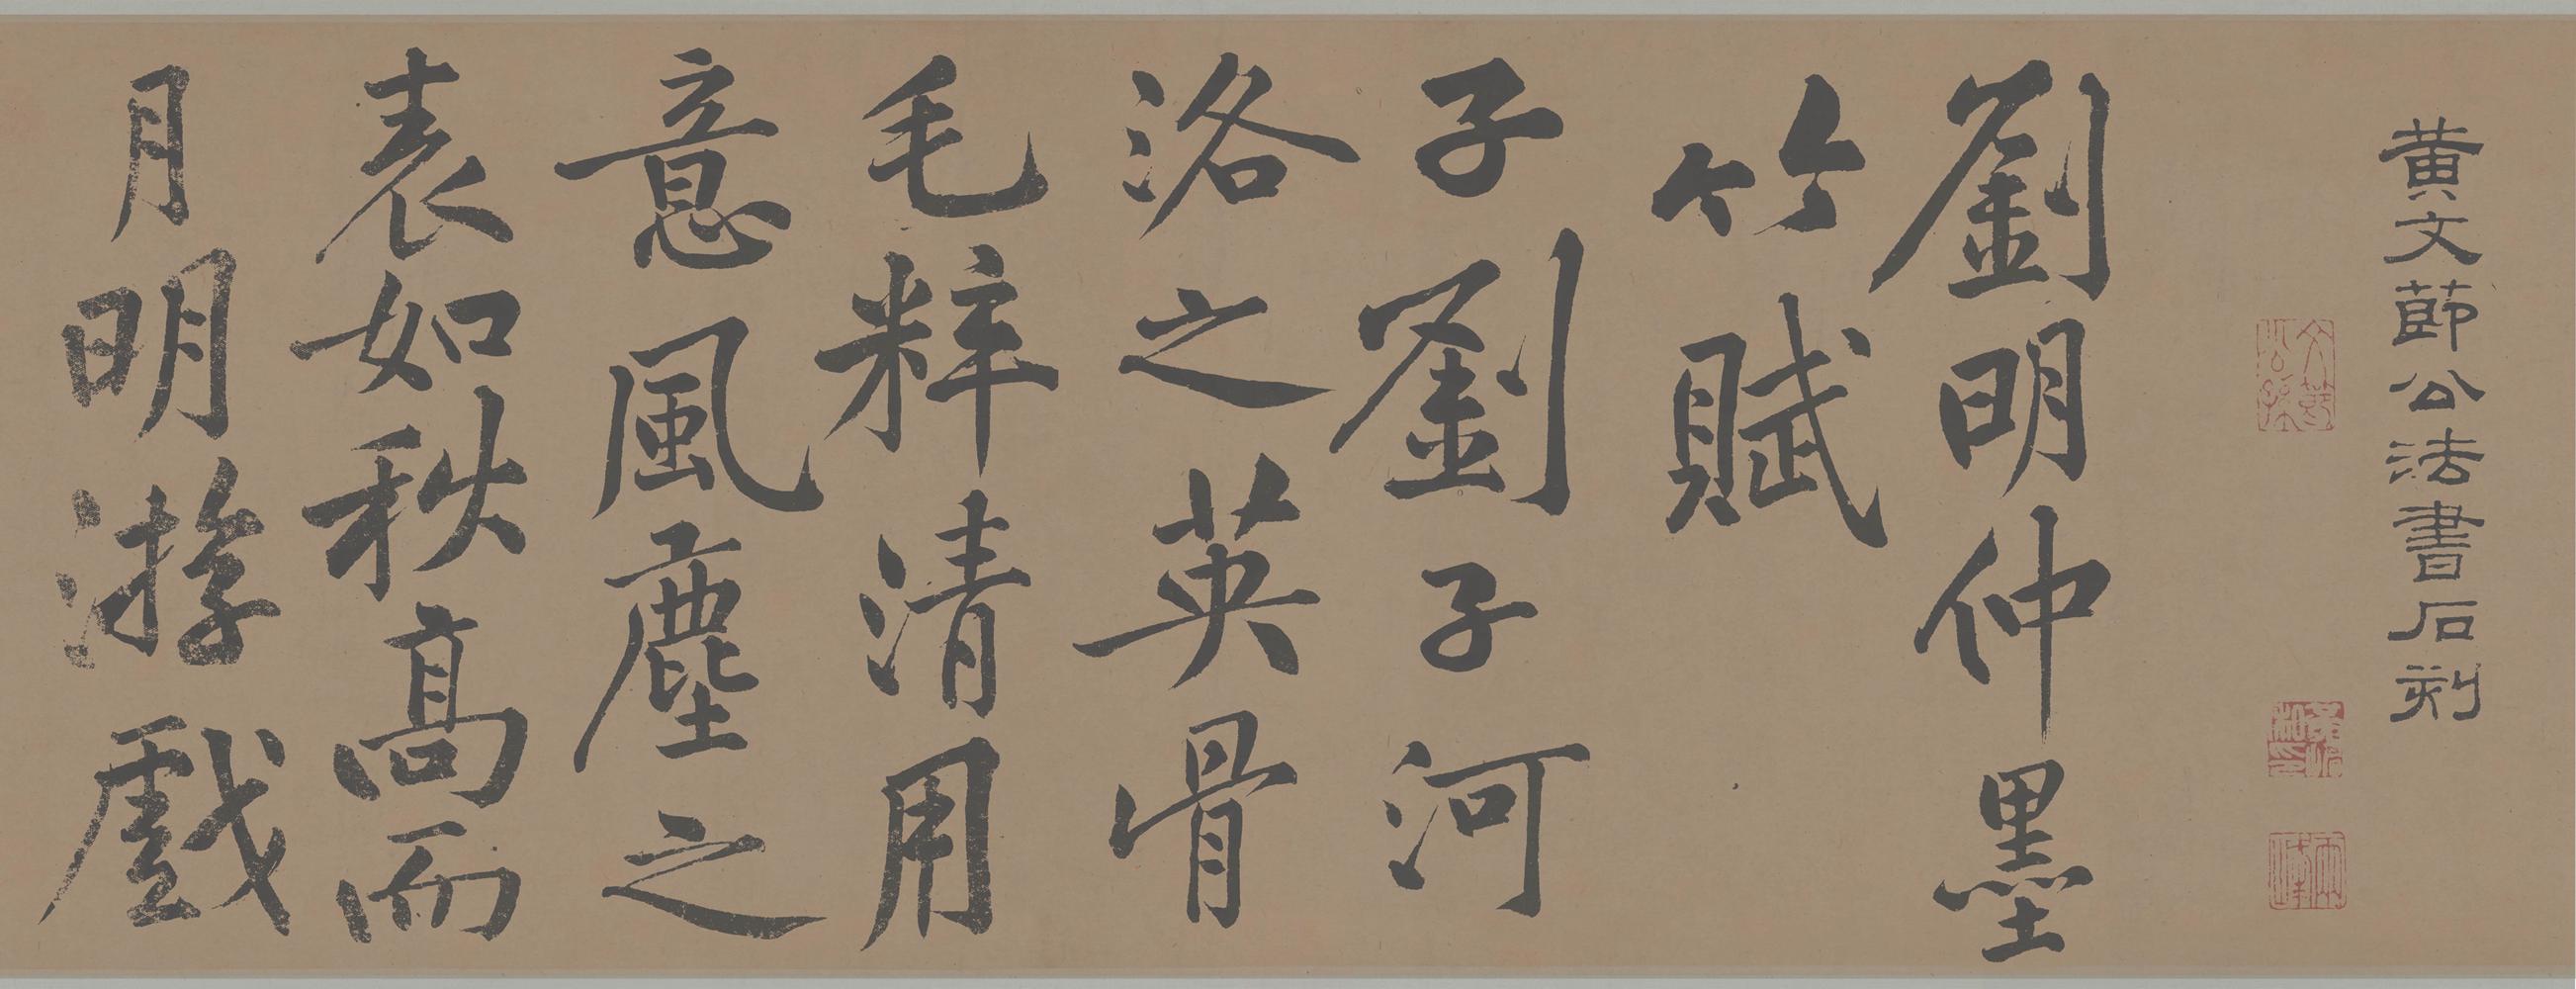 黄文節公法書石刻
劉明仲墨
竹賦
子劉子河
洛之英骨
毛粹清用
意風塵之
表如秋高而
月明游戲